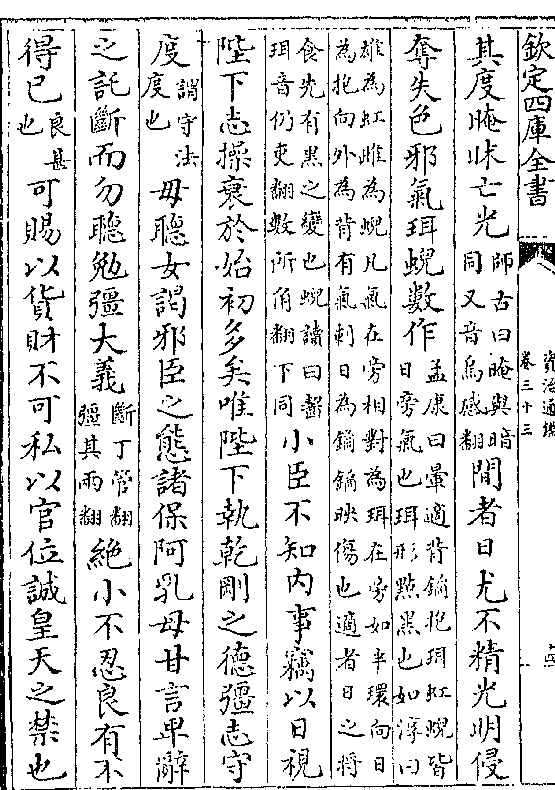 欽定四庫全書
資治通鑑
卷三十三
其度晻昧亡光師古曰晻與暗
同又音烏感翻間者日尤不精光明侵
奪失色邪氣珥蜺數作孟康曰暈適背鐍抱珥虹蜺皆
日旁氣也珥形點黑也如淳曰
雄為虹雌為蜺凡氣在旁相對為珥在旁如半環向日
為抱向外為背有氣刺日為鐍鐍映傷也適者日之將
食先有黑之變也蜺讀曰齧
珥音仍吏翻數所角翻下同小臣不知内事竊以日視
陛下志操衰於始初多矣唯陛下執乾剛之德彊志守
度謂守法
度也毋聽女謁邪臣之態諸保阿乳母甘言卑辭
之託斷而勿聽勉彊大義斷丁管翻
彊其兩翻絶小不忍良有不
得已良甚
也可賜以貨財不可私以官位誠皇天之禁也